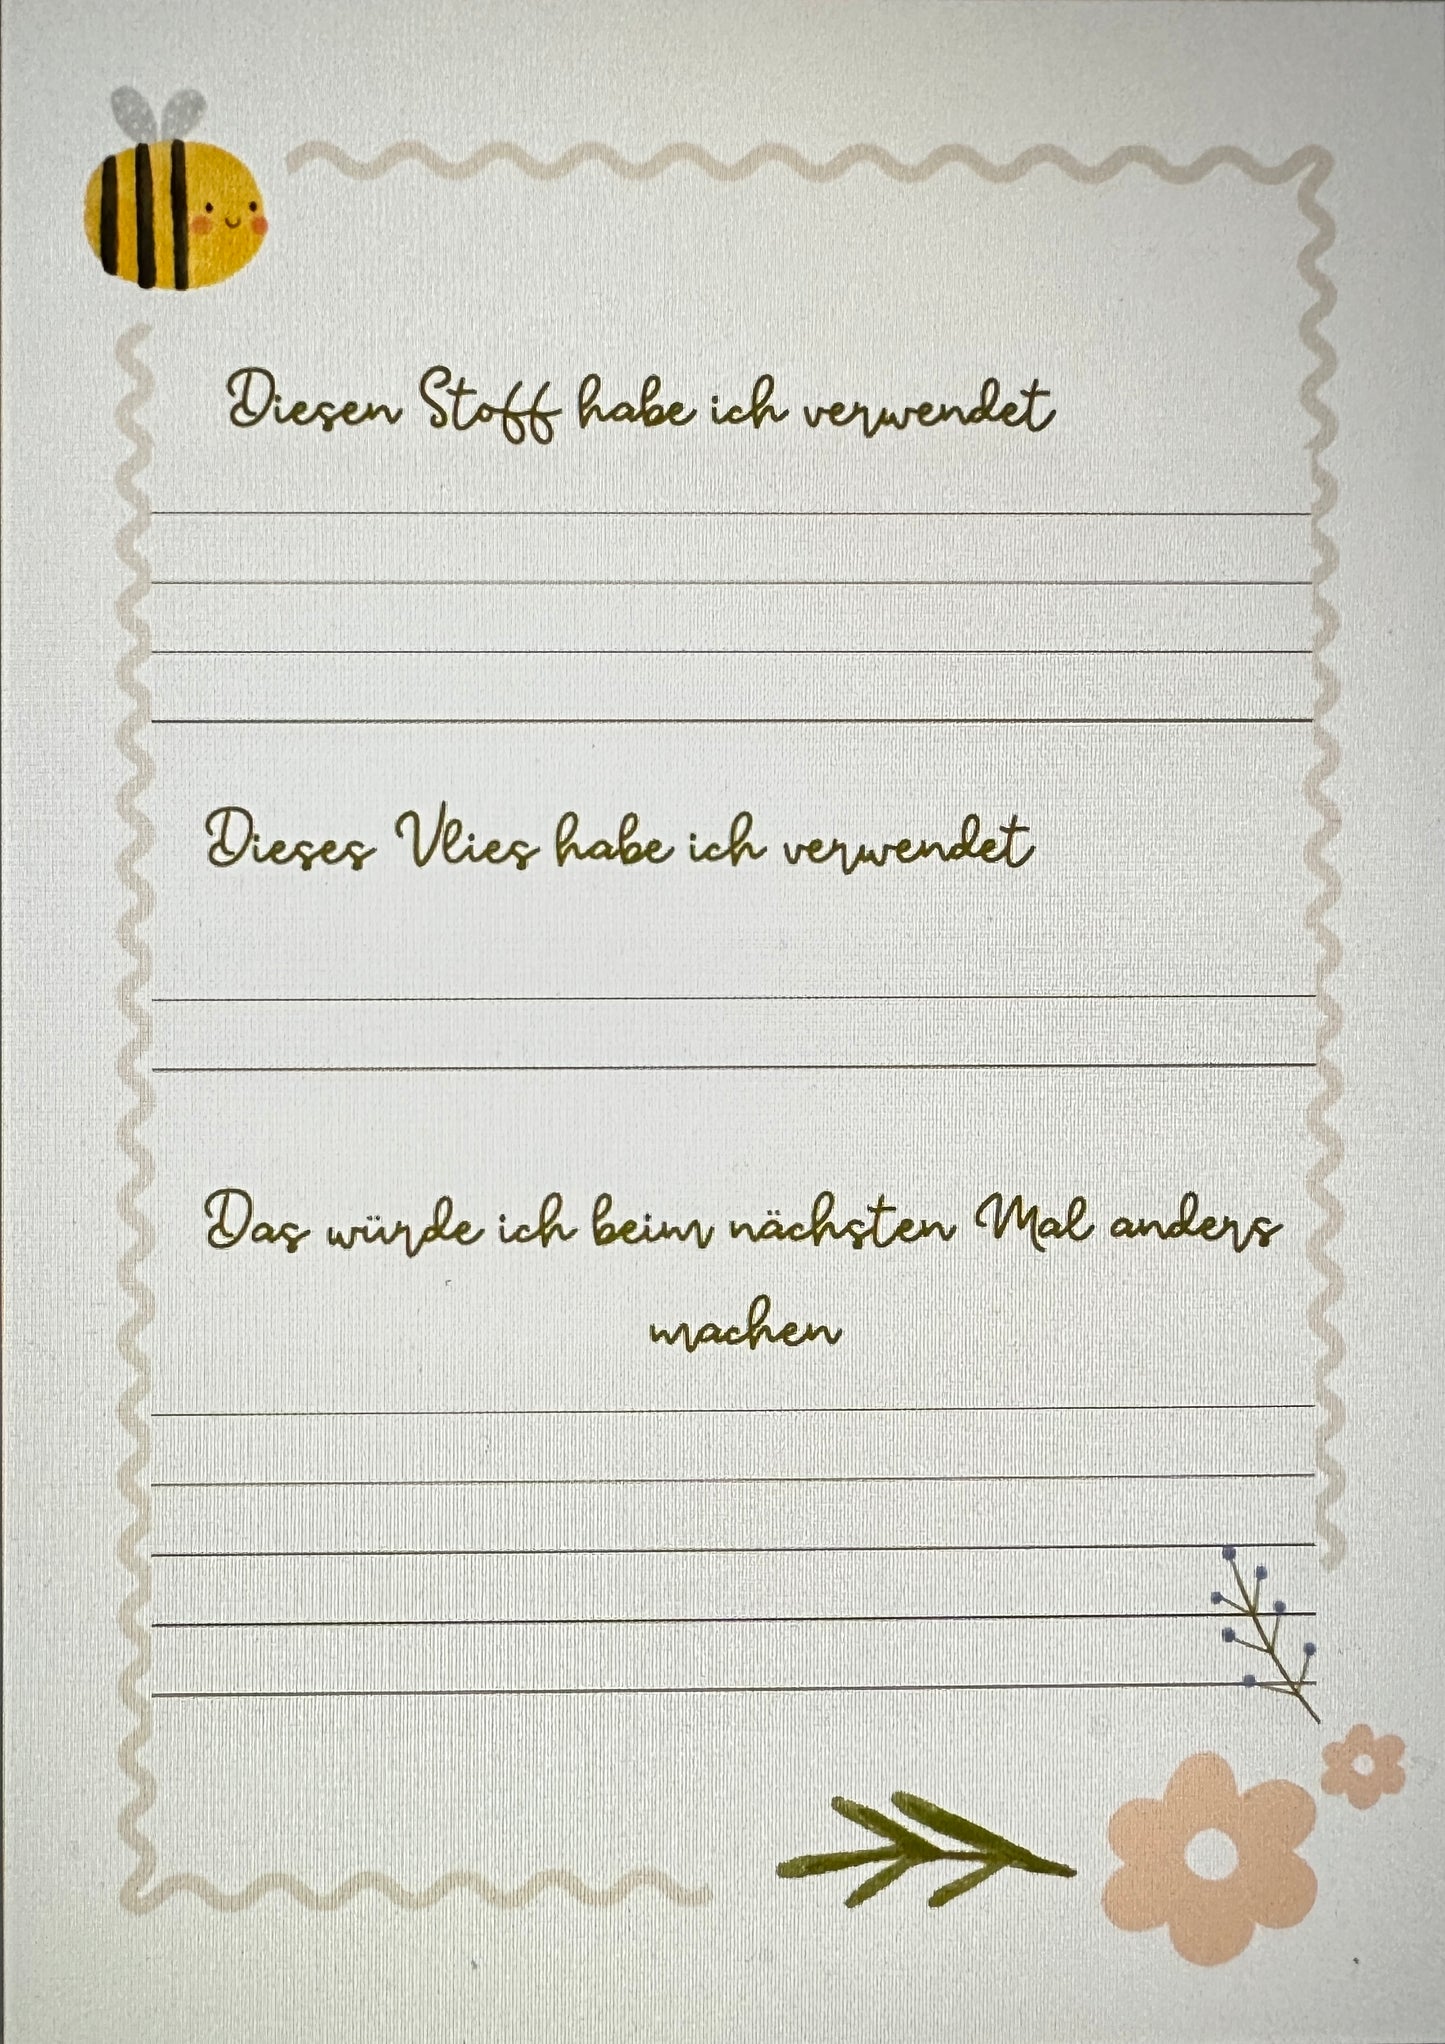 Diesen Stoff habe ich verwendet
Dieses Vlies habe ich verwendet
Das würde ich beim nächsten Mal anders
machen